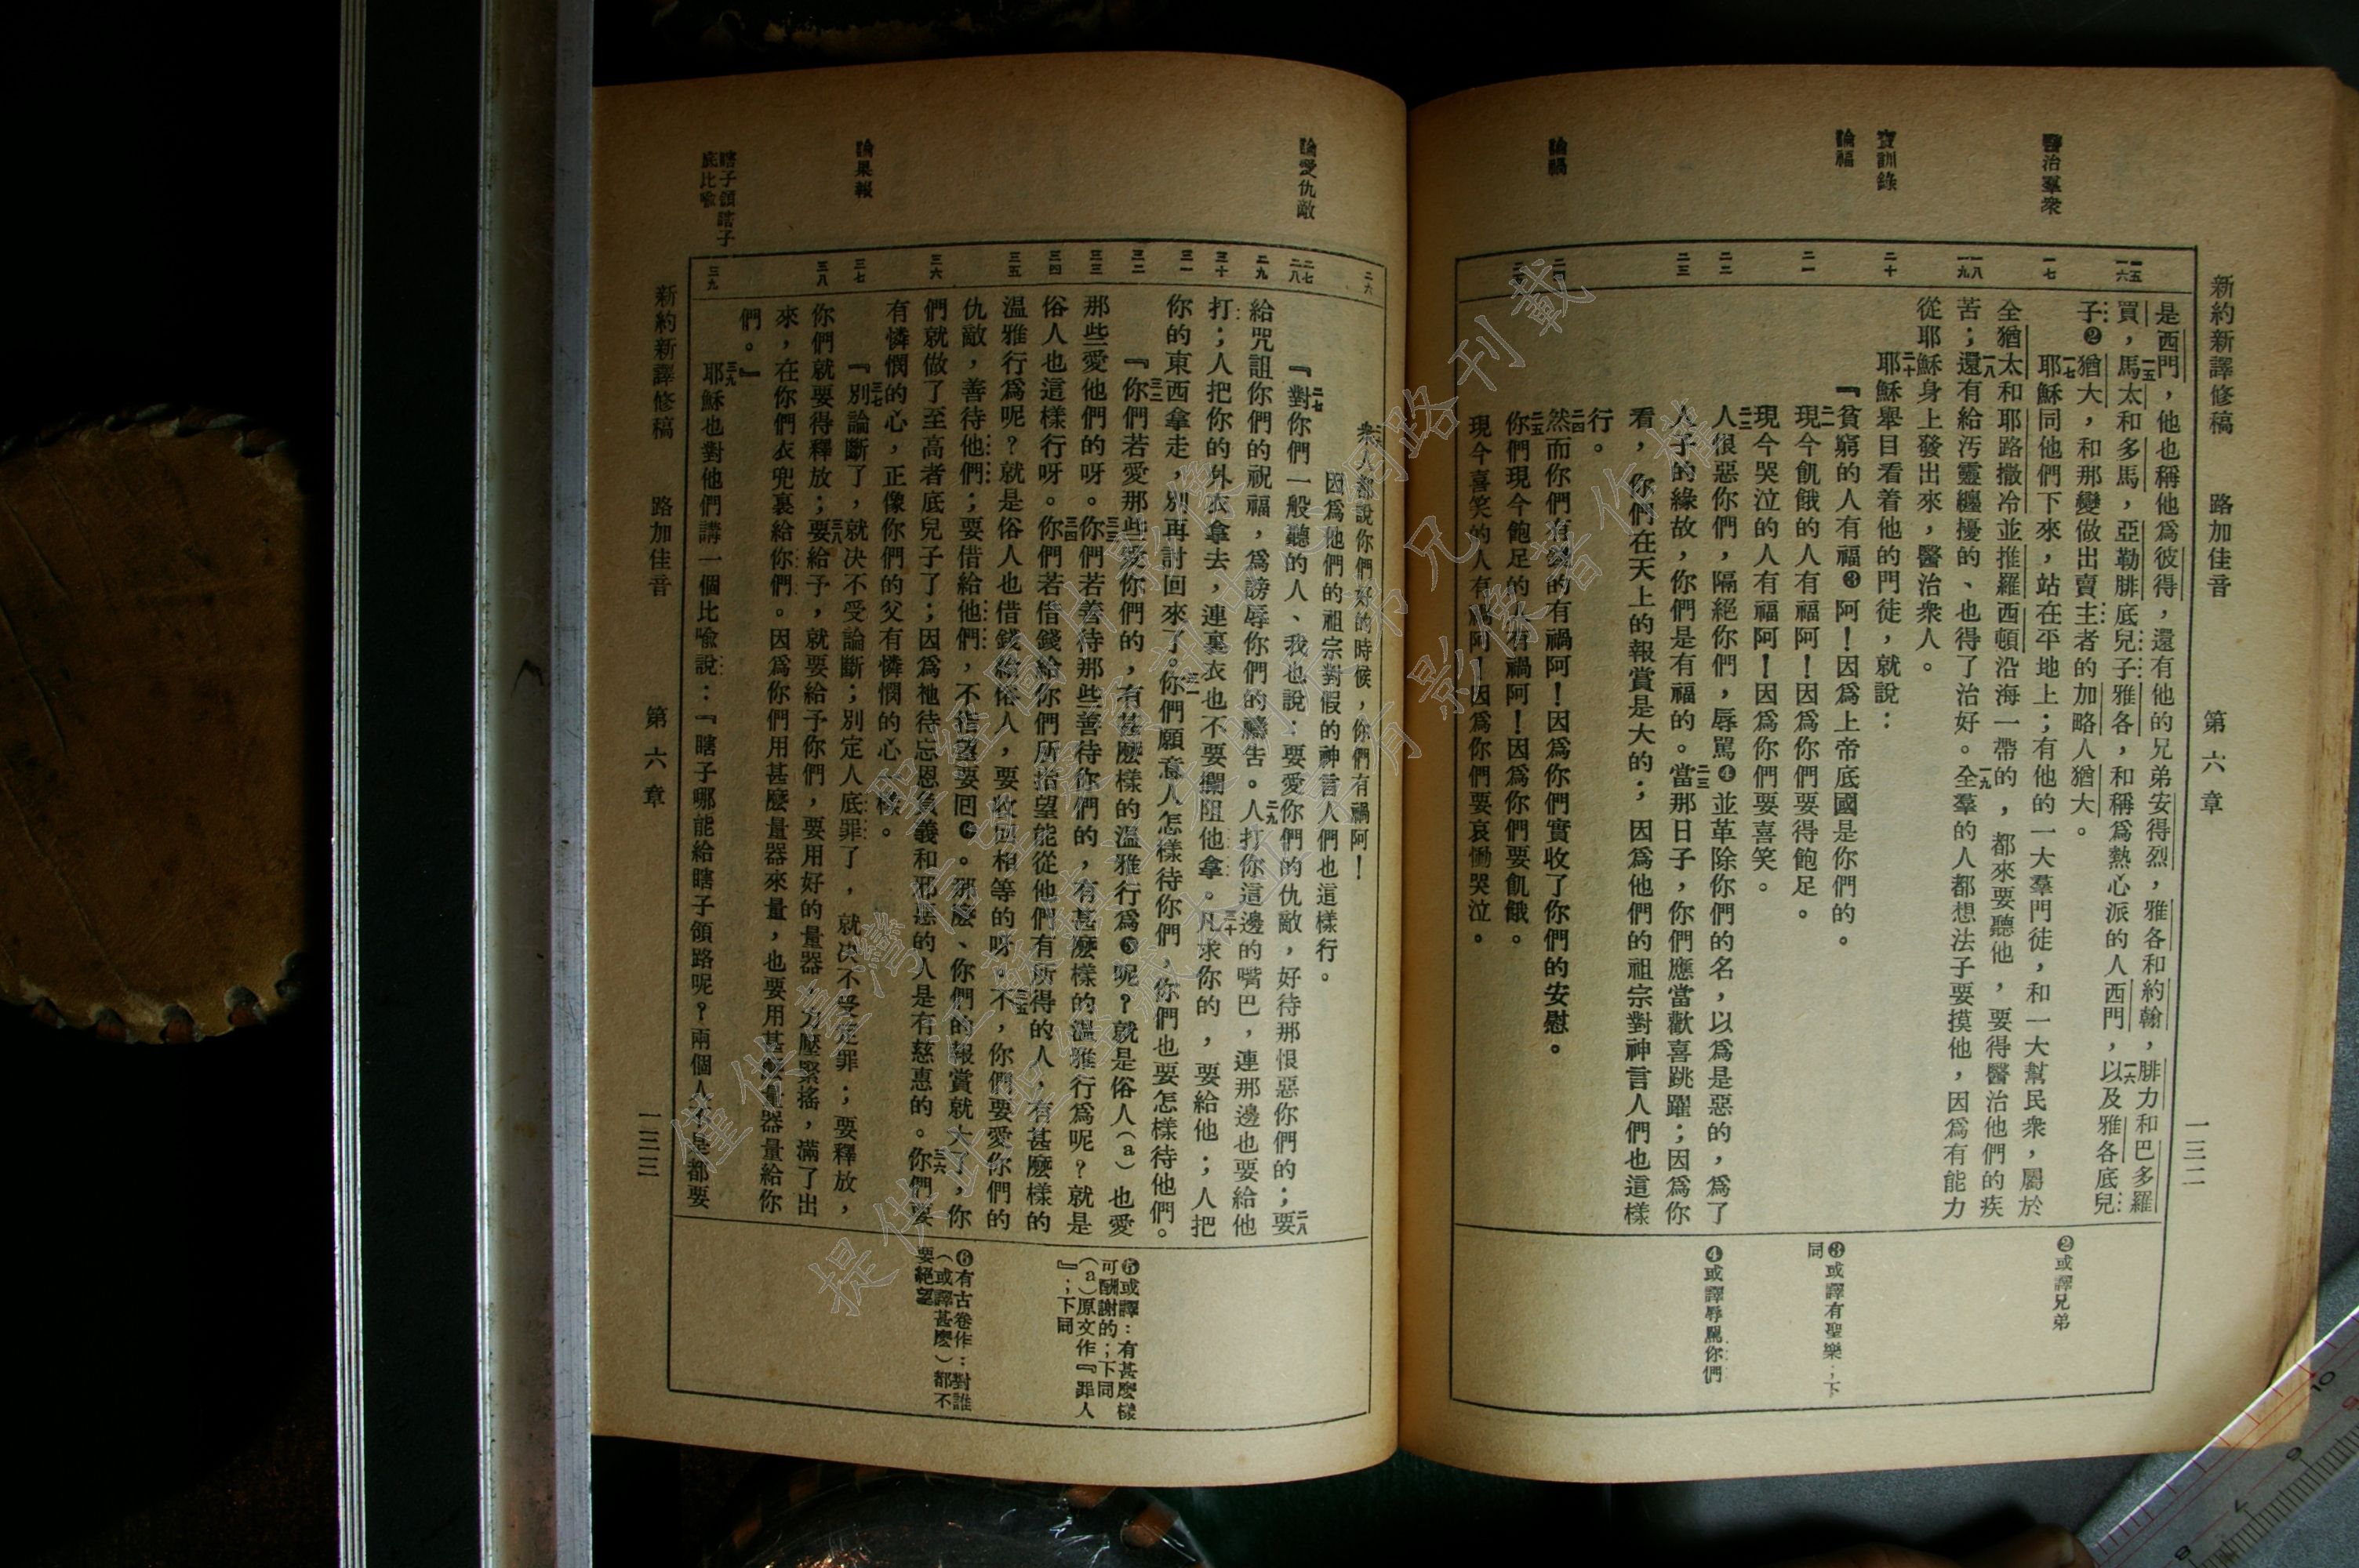 新約新譯修稿　路加佳音　第六章　一三二
醫治羣衆
寶訓錄
論福
論禍
一五
一六
一七
一八
一九
二十
二一
二二
二三
二四
二五
是西門，他也稱他爲彼得，還有他的兄弟安得烈，雅各和約翰，腓力和巴多羅
買，一五馬太和多馬，亞勒腓底兒子雅各，和稱爲熱心派的人西門，一六以及雅各底兒
子❷猶大，和那變做出賣主者的加略人猶大。
一七耶穌同他們下來，站在平地上；有他的一大羣門徒，和一大幫民衆，屬於
全猶太和耶路撒冷並推羅西頓沿海一帶的，都來要聽他，要得醫治他們的疾
苦；一八還有給汚靈纏擾的、也得了治好。一九全羣的人都想法子要摸他，因爲有能力
從耶穌身上發出來，醫治衆人。
二十耶穌舉目看着他的門徒，就說：
『貧窮的人有福❸阿！因爲上帝底國是你們的。
二一現今飢餓的人有福阿！因爲你們要得飽足。
現今哭泣的人有福阿！因爲你們要喜笑。
二二人很惡你們，隔絕你們，辱駡❹並革除你們的名，以爲是惡的，爲了
人子的緣故，你們是有福的。二三當那日子，你們應當歡喜跳躍；因爲你
看，你們在天上的報賞是大的；因爲他們的祖宗對神言人們也這樣
行。
二四然而你們有錢的有禍阿！因爲你們實收了你們的安慰。
二五你們現今飽足的人有禍阿！因爲你們要飢餓。
現今喜笑的人有禍阿！因爲你們要哀慟哭泣。
❷或譯兄弟
❸或譯有聖樂；下
同
❹或譯辱駡你們
論愛仇敵
論果報
瞎子領瞎子
底比喩
二六
二七
二八
二九
三十
三一
三二
三三
三四
三五
三六
三七
三八
三九
衆人都說你們好的時候，你們有禍阿！
因爲他們的祖宗對假的神言人們也這樣行。
『二七對你們一般聽的人、我也說：要愛你們的仇敵，好待那恨惡你們的；二八要
給咒詛你們的祝福，爲謗辱你們的禱告。二九人打你這邊的嘴巴，連那邊也要給他
打；人把你的外衣拿去，連裏衣也不要攔阻他拿。三十凡求你的，要給他；人把
你的東西拿走，別再討回來了。三一你們願意人怎樣待你們，你們也要怎樣待他們。
『三二你們若愛那些愛你們的，有甚麽樣的溫雅行爲❺呢？就是俗人（a）也愛
那些愛他們的呀。三三你們若善待那些善待你們的，有甚麽樣的溫雅行爲呢？就是
俗人也這樣行呀。三四你們若借錢給你們所指望能從他們有所得的人，有甚麽樣的
溫雅行爲呢？就是俗人也借錢給俗人，要收回相等的呀。三五不，你們要愛你們的
仇敵，善待他們；要借給他們，不指望要囘❻。那麽、你們的報賞就大了，你
們就做了至高者底兒子了；因爲祂待忘恩負義和邪惡的人是有慈惠的。三六你們要
有憐憫的心，正像你們的父有憐憫的心一樣。
『三七別論斷了，就决不受論斷；別定人底罪了，就决不受定罪；要釋放，
你們就要得釋放；三八要給予，就要給予你們，要用好的量器，力壓緊搖，滿了出
來，在你們衣兜裏給你們。因爲你們用甚麽量器來量，也要用甚麽量器量給你
們。』
三九耶穌也對他們講一個比喩說：『瞎子哪能給瞎子領路呢？兩個人不是都要
❺或譯：有甚麽樣
可酬謝的；下同
（a）原文作『罪人
』；下同
❻有古卷作：對誰
（或譯甚麽）都不
要絕望
新約新譯修稿　路加佳音　第六章　一三三